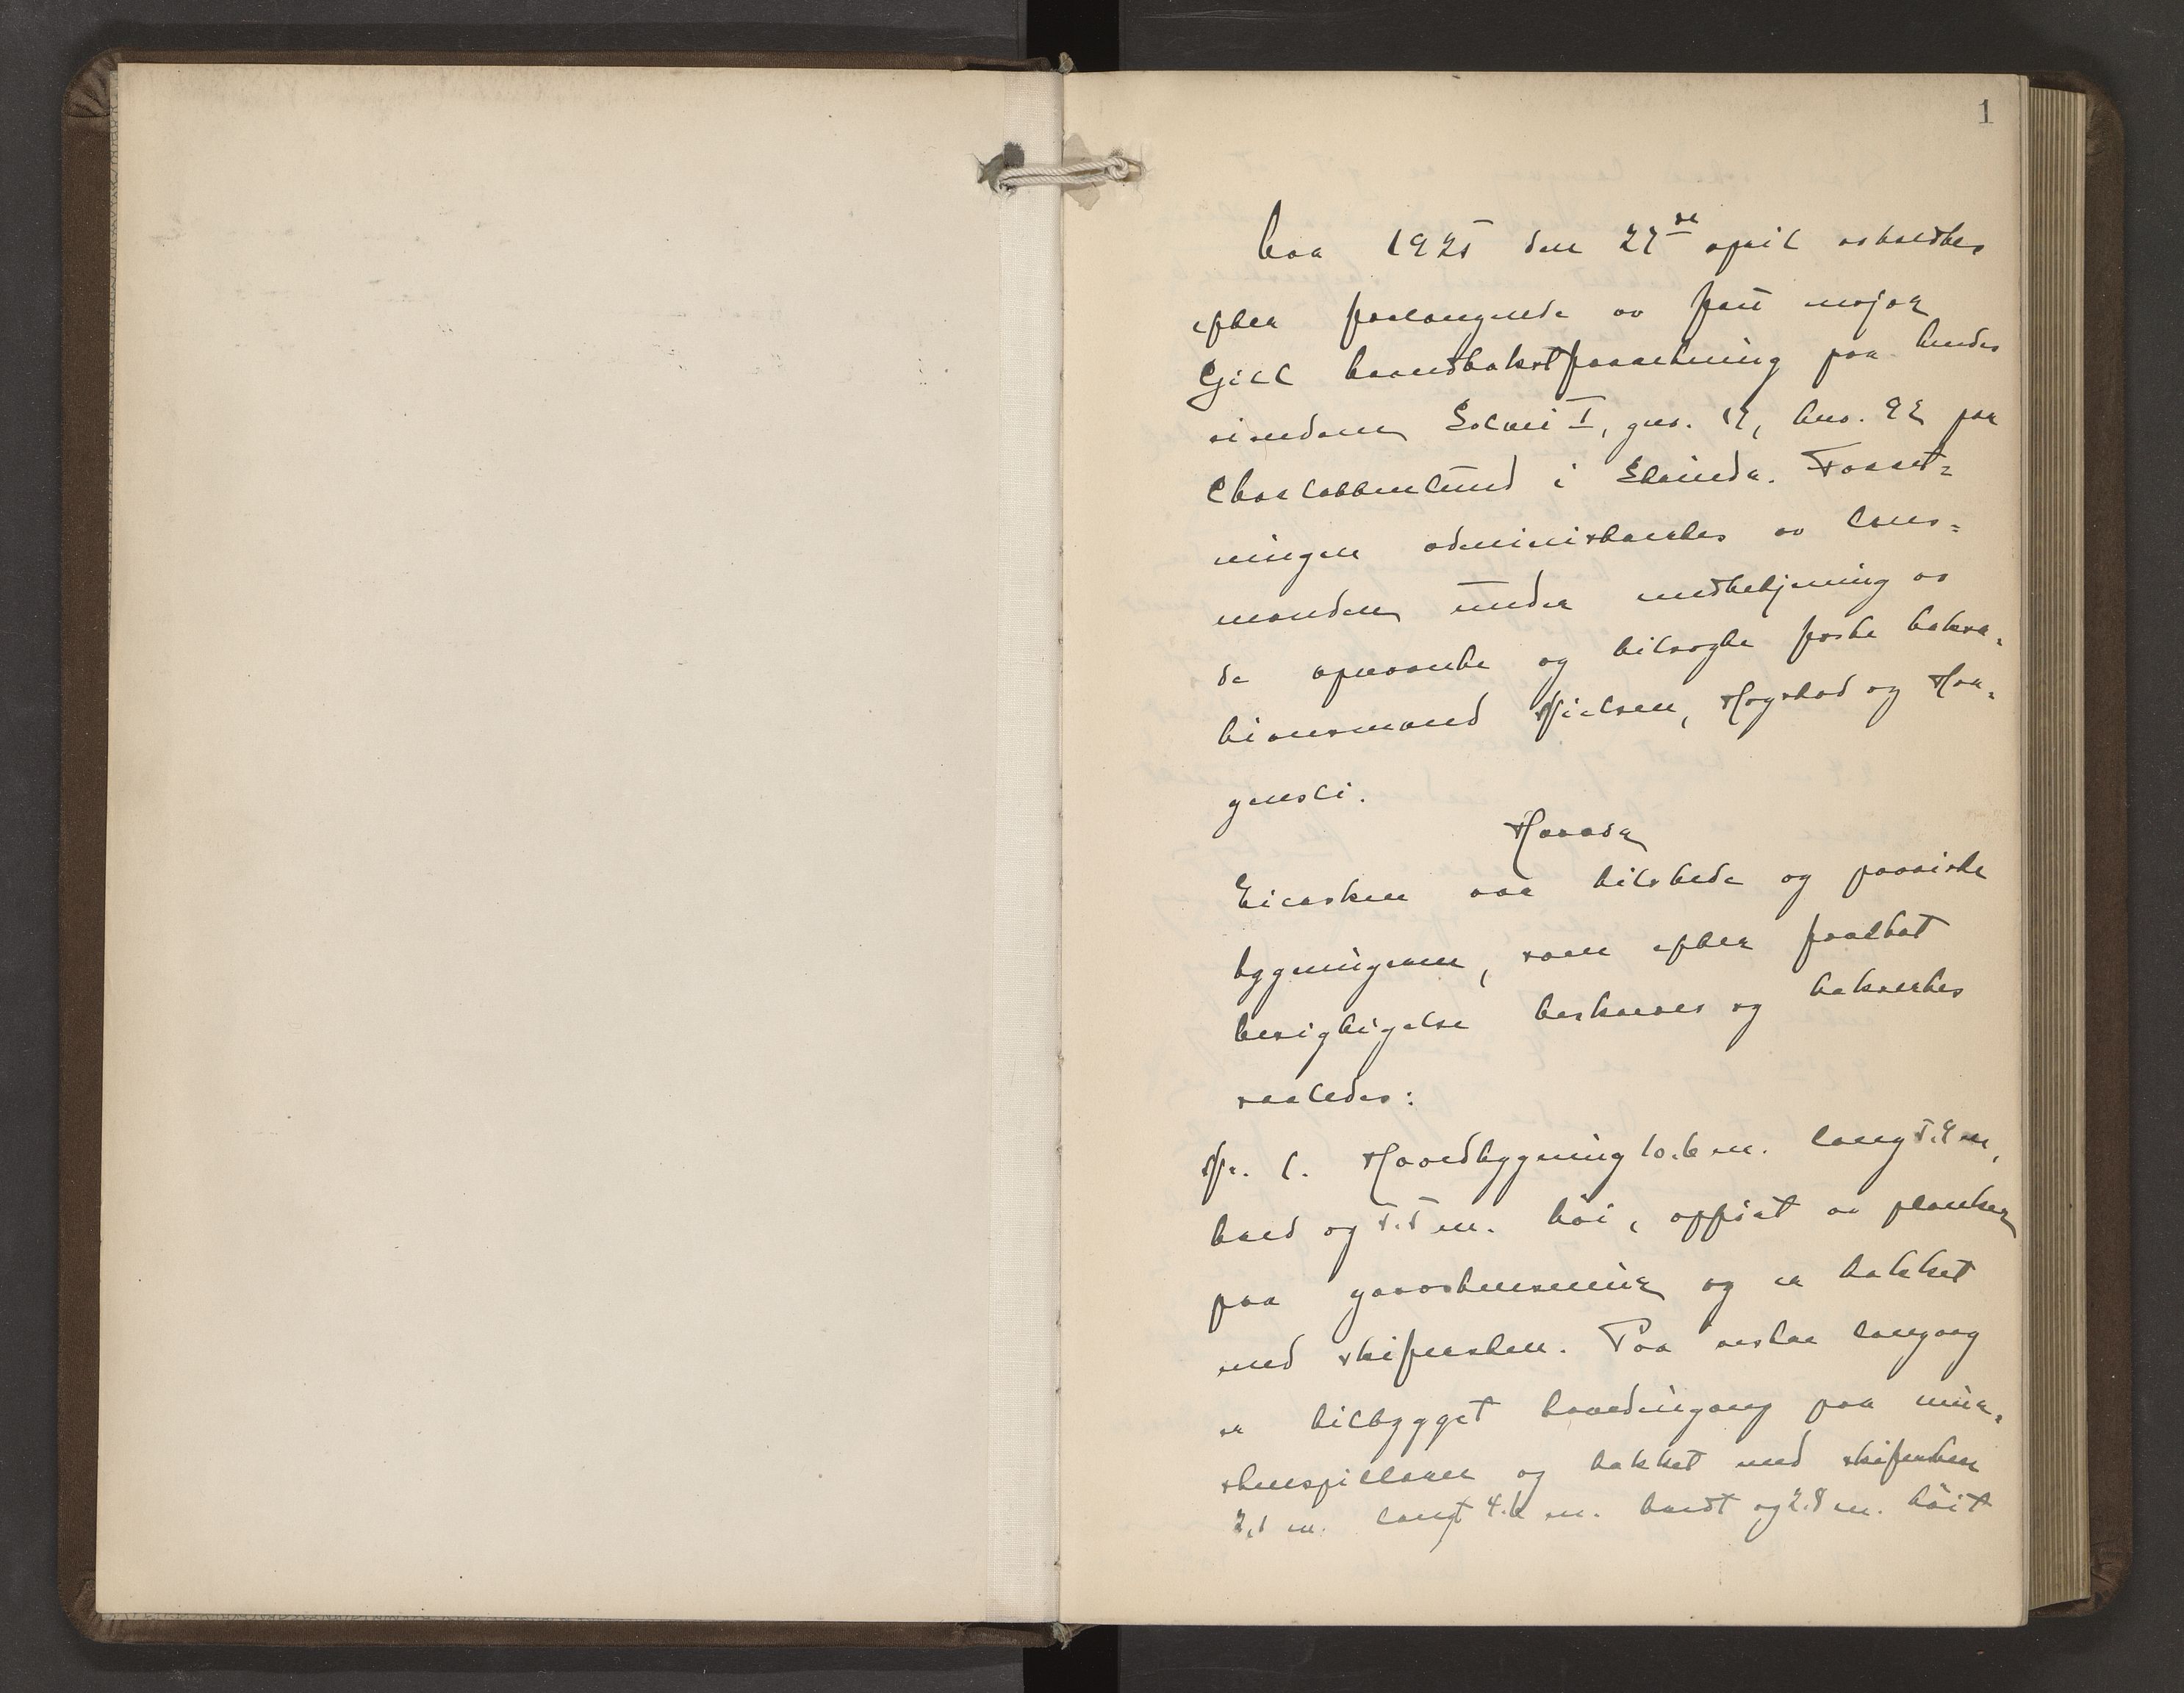 1
Aar 1925 den 27de april avholdtes
efter forlangende av fru major
Gill branntakstforretning paa hendes
eiendom Solvei I, gnr. 17, bnr. 92 paa
Charlottenlund i Strinda. Forret=
ningen administrertes av lens=
manden under medbetjening av
de opnævnte og tilsagte faste taksa=
tionsmænd Nielsen, Hogstad og Haa=
gensli.
Hovda
Eiersken var tilstede og paaviste
bygningerne, som efter foretat
besigtigelse beskrives og taksertes
saaledes:
Nr. 1. Hovedbygning 10.6 m. lang 5.9 m,
bred og 5.5 m. høi, opført av planker
paa graastensmur og er tækket
med skifersten. Paa østre langvæg
er tilbygget hovedingang paa mur=
stenspillarer og tækket med skifersten
2,1 m. langt 4.6 m. bredt og 2.8 m. høit